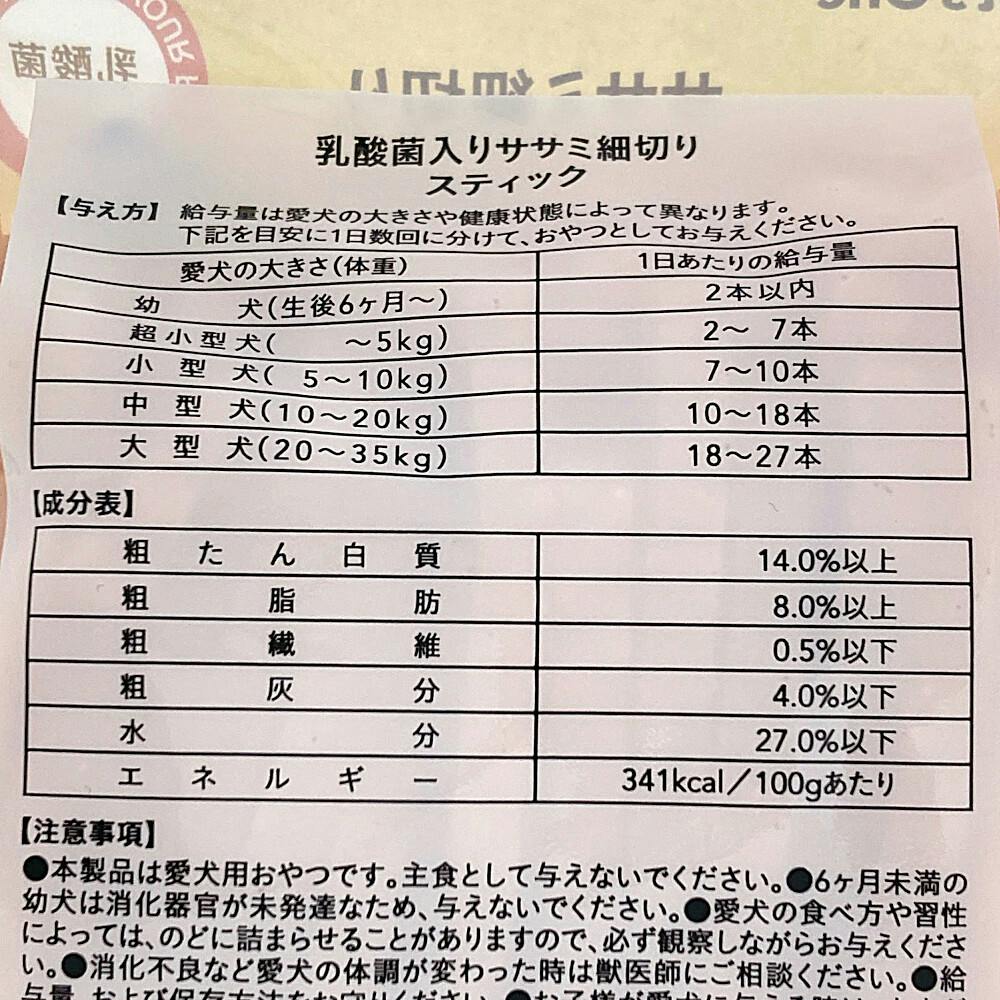 乳酸菌
ササミ細切り
乳酸菌入りササミ細切り
スティック
【与え方】 給与量は愛犬の大きさや健康状態によって異なります。
下記を目安に1日数回に分けて、おやつとしてお与えください。
愛犬の大きさ(体重) 1日あたりの給与量
幼犬(生後6ヶ月〜) 2本以内
超小型犬( 〜5kg) 2〜 7本
小型犬( 5〜10kg) 7〜10本
中型犬(10〜20kg) 10〜18本
大型犬(20〜35kg) 18〜27本
【成分表】
粗たん白質 14.0%以上
粗脂肪 8.0%以上
粗繊維 0.5%以下
粗灰分 4.0%以下
水分 27.0%以下
エネルギー 341kcal/100gあたり
【注意事項】
●本製品は愛犬用おやつです。主食として与えないでください。●6ヶ月未満の
幼犬は消化器官が未発達なため、与えないでください。●愛犬の食べ方や習性
によっては、のどに詰まらせることがありますので、必ず観察しながらお与えくださ
い。●消化不良など愛犬の体調が変わった時は獣医師にご相談ください。●給
与量、および保存方法をお守りください。●お子様が愛犬に与える